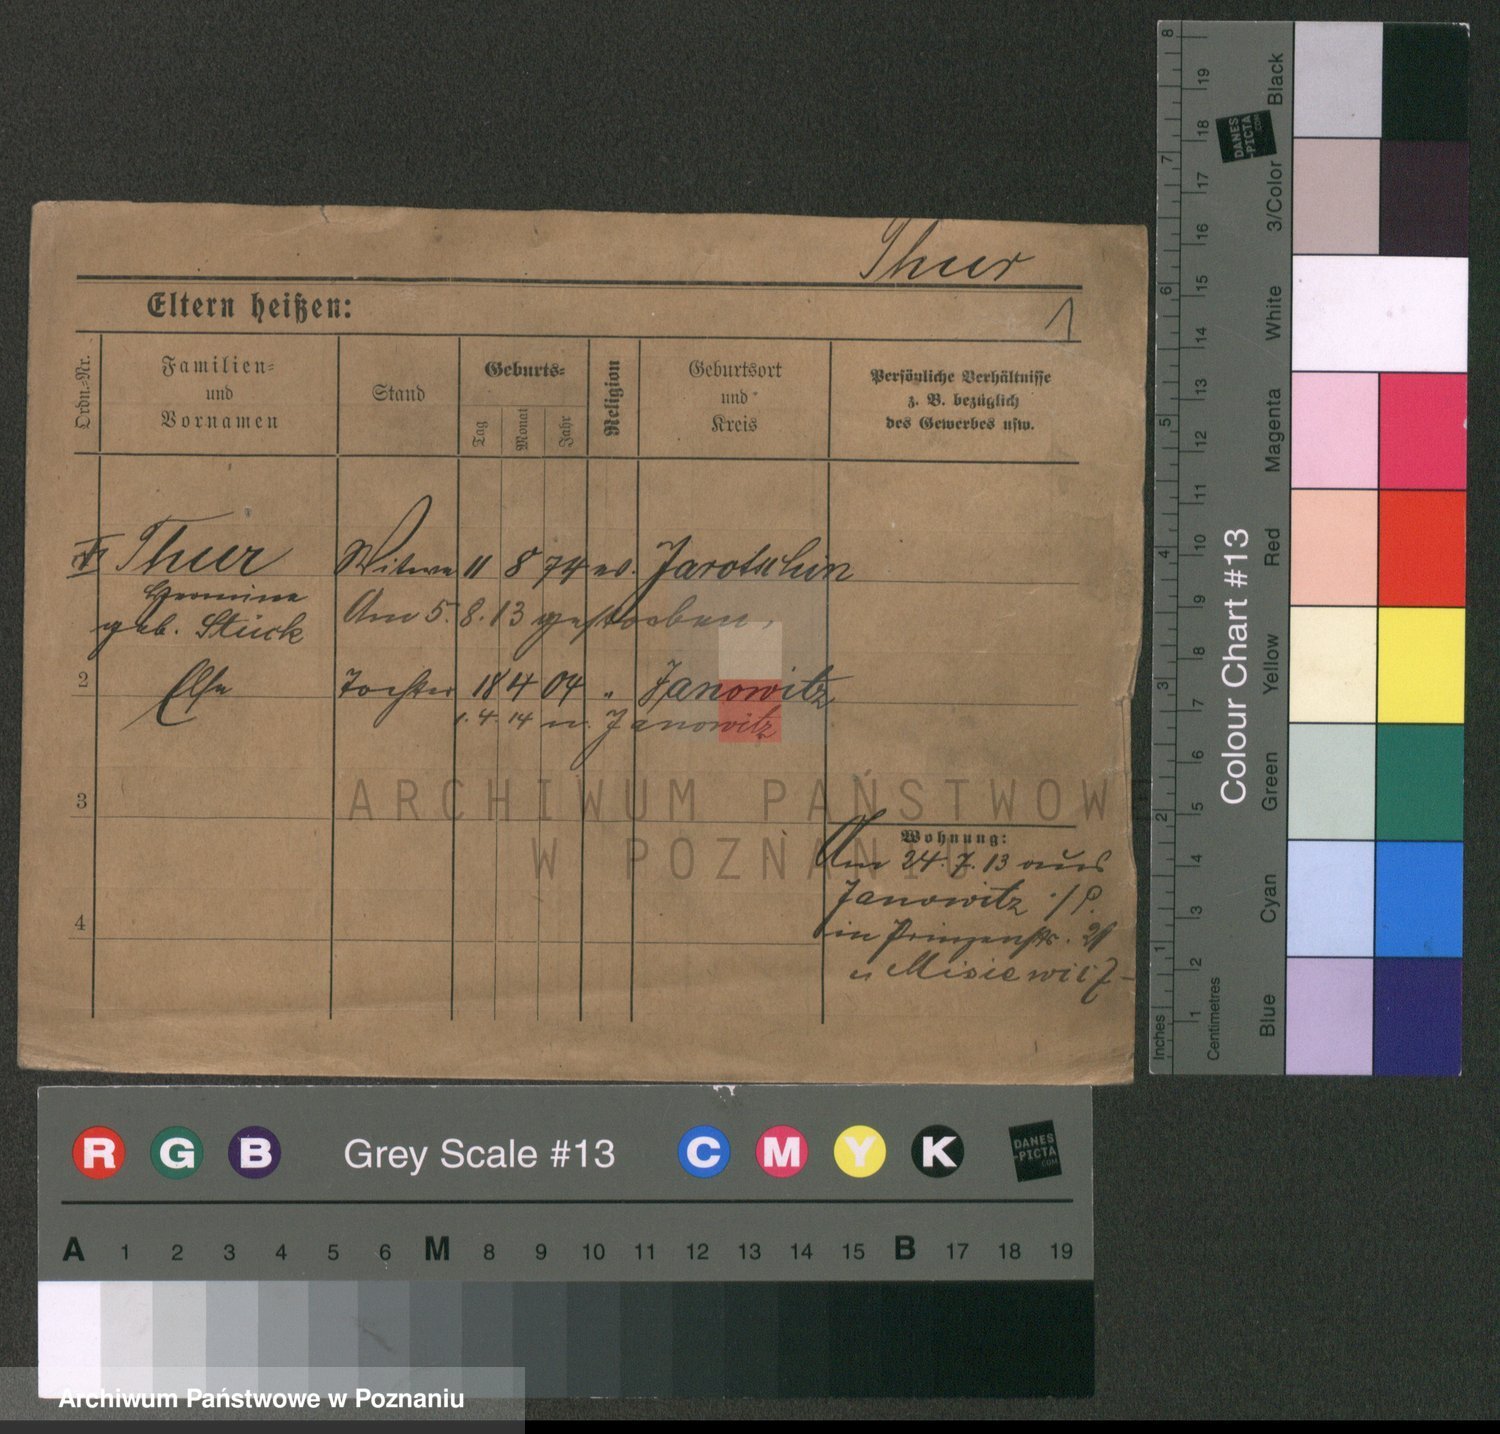 Thur
Eltern heißen:
1
Ordn.-Nr.
Familien-
und
Vornamen
Stand
Geburts-
Tag
Monat
Jahr
Religion
Geburtsort
und
Kreis
Persönliche Verhältnisse
z. B. bezüglich
des Gewerbes usw.
Thur Witwe 11 8 74 ev. Jarotschin
Hermine
geb. Stück
Am 5. 8. 13 gestorben,
2 Else Tochter 18 4 04 " Janowitz
1. 4. 14 n. Janowitz
3
4
Wohnung:
Am 24. 7. 13 aus
Janowitz /P.
in Prinzenstr. 21
Misiewicz
ARCHIWUM PAŃSTWOWE
W POZNANIU
Colour Chart #13
Black
3/Color
White
Magenta
Red
Yellow
Green
Cyan
Blue
8 7 6 5 4 3 2 1 Inches
19 18 17 16 15 14 13 12 11 10 9 8 7 6 5 4 3 2 1 Centimetres
DANES
-PICTA
.COM
R G B Grey Scale #13 C M Y K
DANES
-PICTA
.COM
A 1 2 3 4 5 6 M 8 9 10 11 12 13 14 15 B 17 18 19
Archiwum Państwowe w Poznaniu